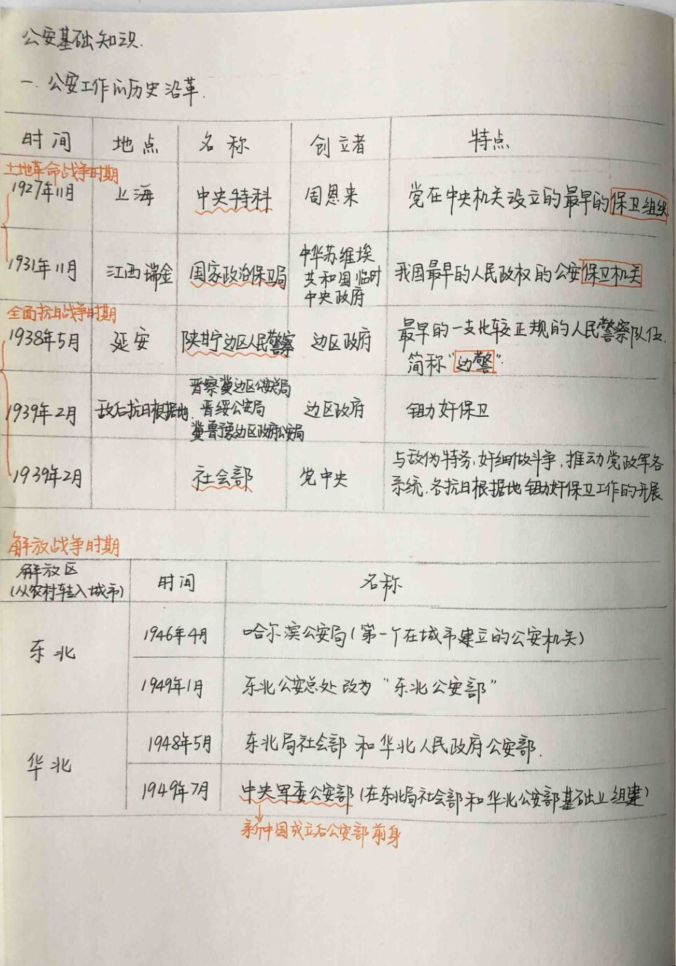 公安基础知识.
一. 公安工作的历史沿革.
时间 地点 名称 创立者 特点
土地革命战争时期
1927年11月 上海 中央特科 周恩来 党在中央机关设立的最早的保卫组织
1931年11月 江西瑞金 国家政治保卫局 中华苏维埃 我国最早的人民政权的公安保卫机关
共和国临时
中央政府
全面抗日战争时期
1938年5月 延安 陕甘宁边区人民警察 边区政府 最早的一支比较正规的人民警察队伍.
简称"边警".
晋察冀边区公安总局
1939年2月 敌后抗日根据地 晋绥公安局 边区政府 锄奸保卫
冀鲁豫边区政府公安局
1939年2月 社会部 党中央 与敌伪特务,奸细做斗争,推动党政军各
系统.各抗日根据地锄奸保卫工作的开展
解放战争时期
解放区 时间 名称
(从农村转入城市)
东北 1946年4月 哈尔滨公安局(第一个在城市建立的公安机关)
1949年1月 东北公安总处改为"东北公安部"
华北 1948年5月 东北局社会部和华北人民政府公安部.
1949年7月 中央军委公安部(在东北局社会部和华北公安部基础上组建)
新中国成立后公安部前身